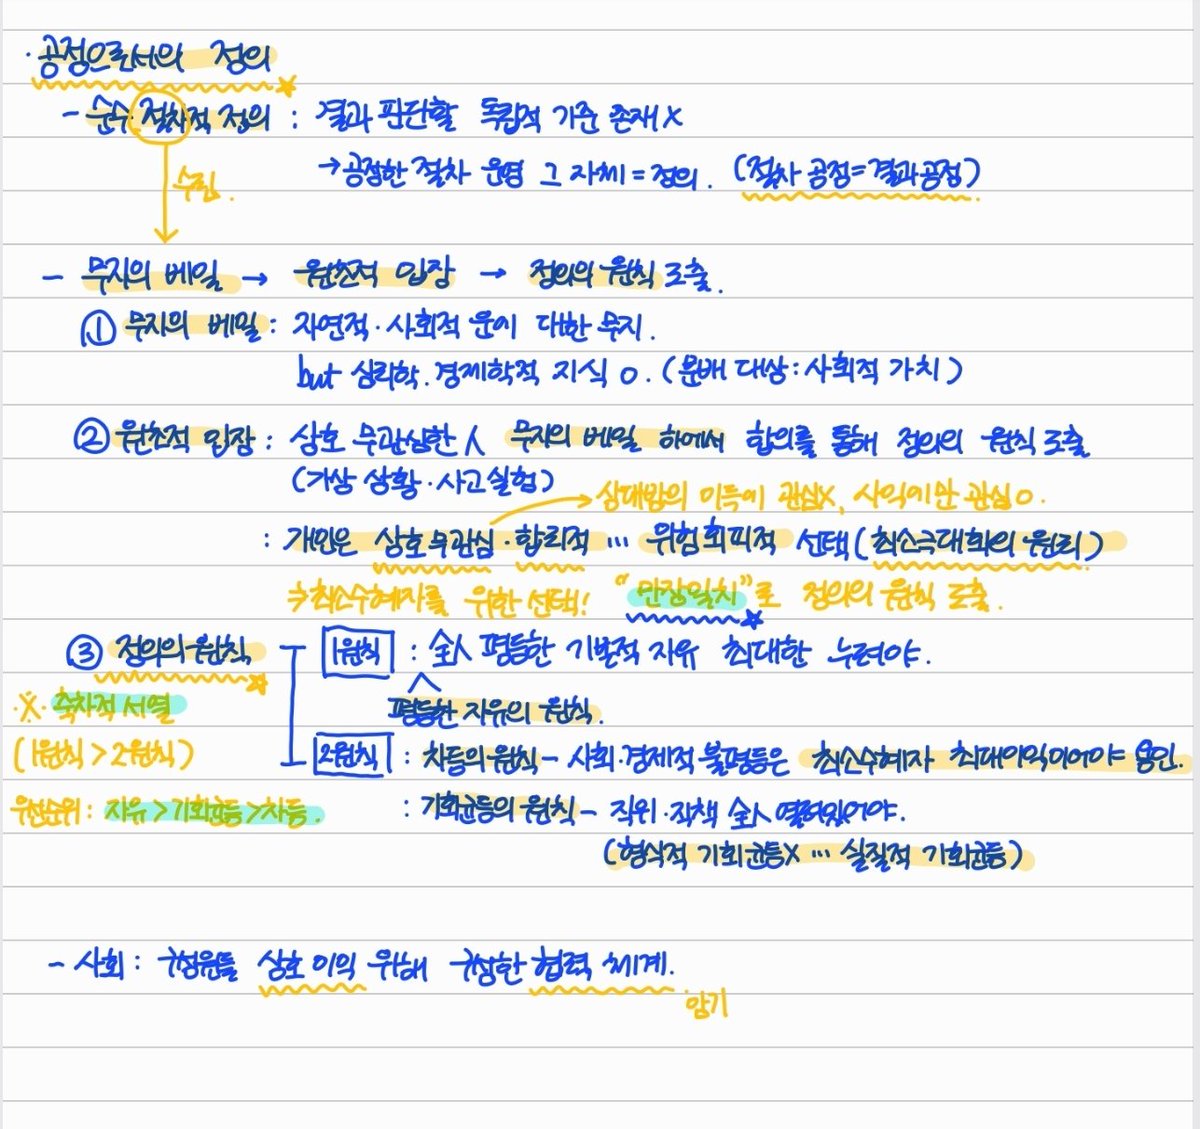 · 공정으로서의 정의
- 순수 절차적 정의 : 결과 판단할 독립적 기준 존재 X
→ 공정한 절차 운영 그 자체 = 정의. (절차 공정 = 결과 공정)
수립.
- 무지의 베일 → 원초적 입장 → 정의의 원칙 도출.
① 무지의 베일 : 자연적·사회적 운에 대한 무지.
but 심리학.경제학적 지식 O. (분배 대상 : 사회적 가치)
② 원초적 입장 : 상호 무관심한 人 무지의 베일 하에서 합의를 통해 정의의 원칙 도출
(가상 상황·사고실험)
상대방의 이득에 관심X, 사익에만 관심O.
: 개인은 상호무관심·합리적 … 위험회피적 선택(최소극대화의 원리)
⇒ 최소수혜자를 위한 선택! "만장일치"로 정의의 원칙 도출.
③ 정의의 원칙
1원칙 : 全人 평등한 기본적 자유 최대한 누려야.
평등한 자유의 원칙.
※ 축차적 서열
(1원칙 > 2원칙)
2원칙 : 차등의 원칙 - 사회·경제적 불평등은 최소수혜자 최대이익이어야 용인.
우선순위 : 자유 > 기회균등 > 차등.
: 기회균등의 원칙 - 직위·직책 全人 열려있어야.
(형식적 기회균등X … 실질적 기회균등)
- 사회 : 구성원들 상호 이익 위해 구성한 협력 체계.
암기